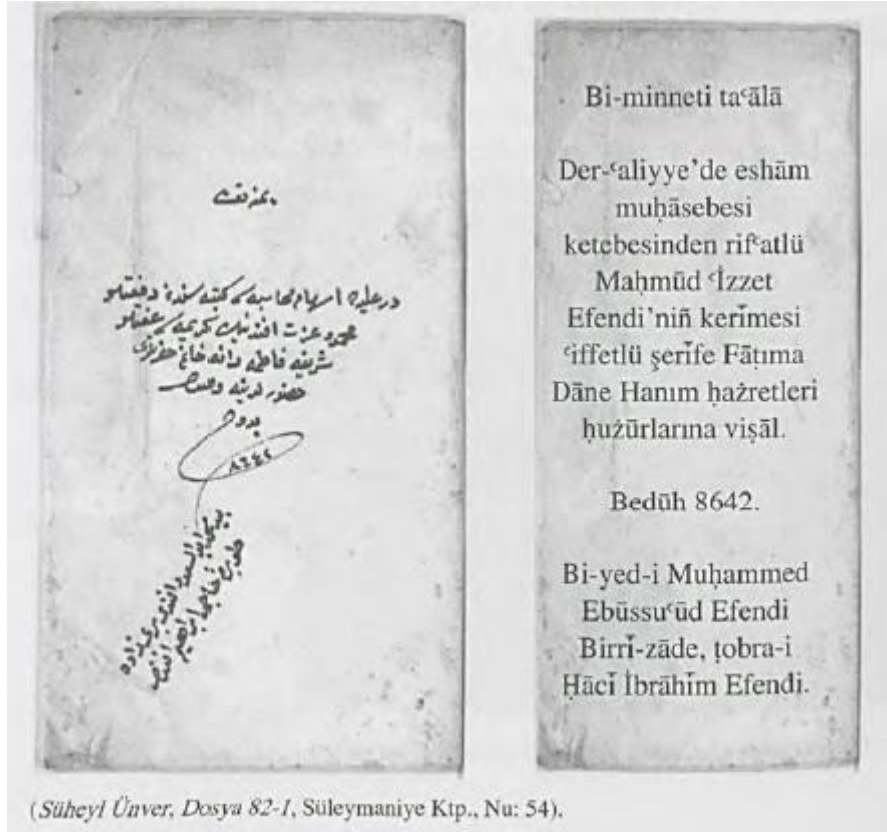 بمنه تعالى
در عليه ده اسهام محاسبه سى كتبه سندن رفعتلو
محمود عزت افندينك كريمه سى عفتلو
شريفه فاطمه دانه خانم حضرتلرى
حضورلرينه وصال
بدوح
٨٦٤٢
Bi-minneti taʿālā
Der-ʿaliyye’de eshām
muḥāsebesi
ketebesinden rifʿatlü
Maḥmūd ʿİzzet
Efendi’niñ kerīmesi
ʿiffetlü şerīfe Fāṭıma
Dāne Hanım ḥażretleri
ḥużūrlarına viṣāl.
Bedūh 8642.
Bi-yed-i Muḥammed
Ebüssuʿūd Efendi
Birrī-zāde, ṭobra-i
Ḥācī İbrāhīm Efendi.
(Süheyl Ünver, Dosya 82-1, Süleymaniye Ktp., Nu: 54).